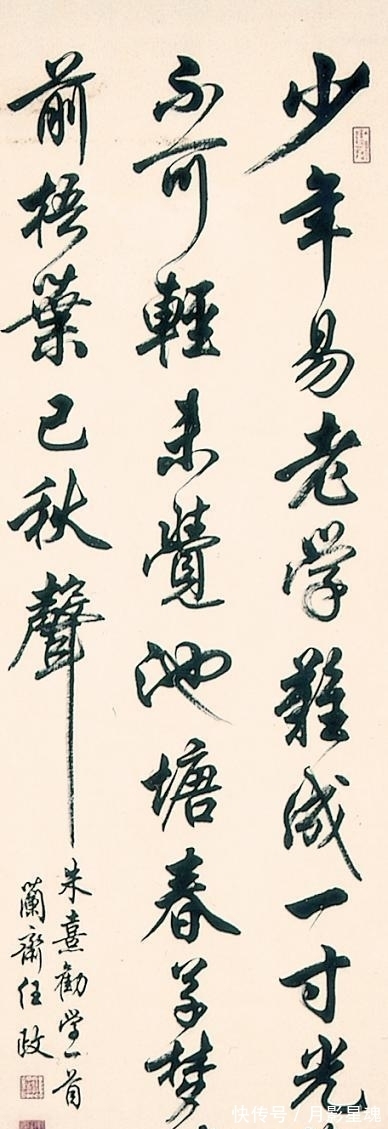 少年易老学難成一寸光
不可輕未覺池塘春草夢
前梧葉已秋聲
朱熹勸学一首
蘭齋任政
快传号 / 月影星魂